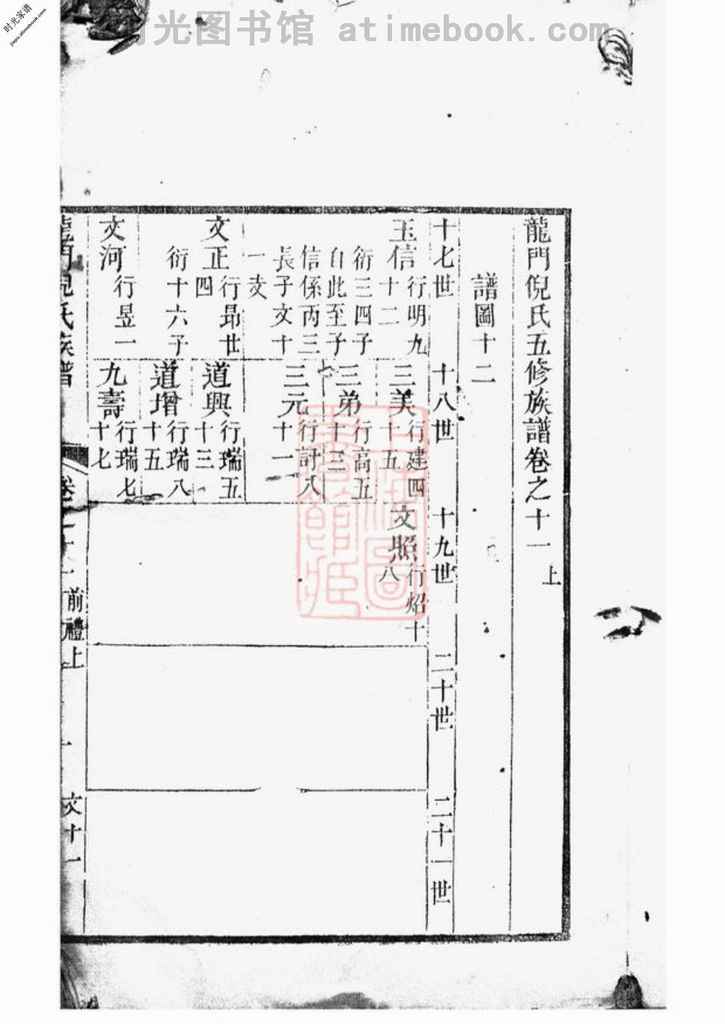 时光图书馆 atimebook.com
时光家谱
龍門倪氏五修族譜卷之十一上
譜圖十二
十七世
十八世
十九世
二十世
二十一世
玉信行明九十二
衍三四子
自此至子
信係丙三
長子文十
一支
三美行建四十五
文照行炤十八
三弟行高五十三
三元行計八十一
文正行昂廿四
衍十六子
道興行瑞五十三
道增行瑞八十五
文河行昱一
九壽行瑞七十七
龍門倪氏族譜
卷之十一前禮上
文十一